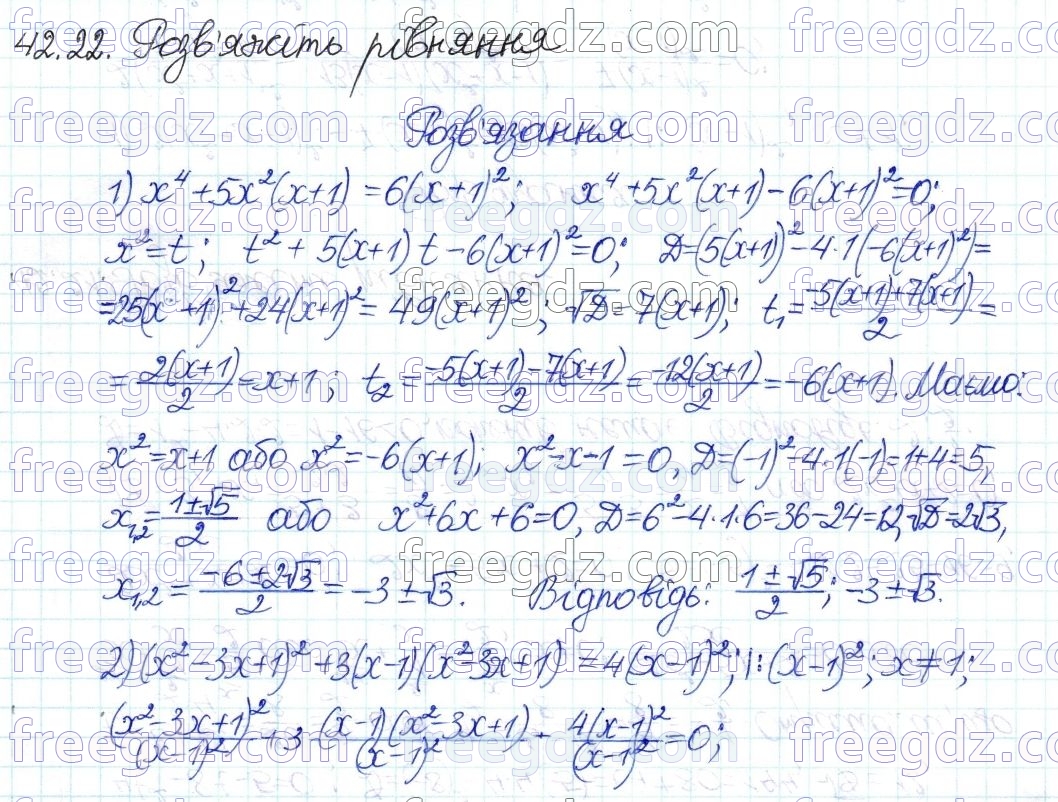 42.22. Розв'яжіть рівняння
Розв'язання
1) x⁴+5x²(x+1) =6(x+1)²; x⁴+5x²(x+1)-6(x+1)²=0;
x²=t; t²+5(x+1)t-6(x+1)²=0; D=(5(x+1))²-4·1(-6(x+1)²)=
=25(x+1)²+24(x+1)²=49(x+1)²; √D=7(x+1); t₁=(-5(x+1)+7(x+1))/2=
=2(x+1)/2=x+1; t₂=(-5(x+1)-7(x+1))/2=-12(x+1)/2=-6(x+1). Маємо:
x²=x+1 або x²=-6(x+1); x²-x-1=0, D=(-1)²-4·1(-1)=1+4=5,
x₁,₂=(1±√5)/2 або x²+6x+6=0, D=6²-4·1·6=36-24=12, √D=2√3,
x₁,₂=(-6±2√3)/2=-3±√3. Відповідь: (1±√5)/2; -3±√3.
2) (x²-3x+1)²+3(x-1)(x²-3x+1) =4(x-1)²; |:(x-1)²; x≠1;
(x²-3x+1)²/(x-1)²+3 (x-1)(x²-3x+1)/(x-1)² - 4(x-1)²/(x-1)²=0;